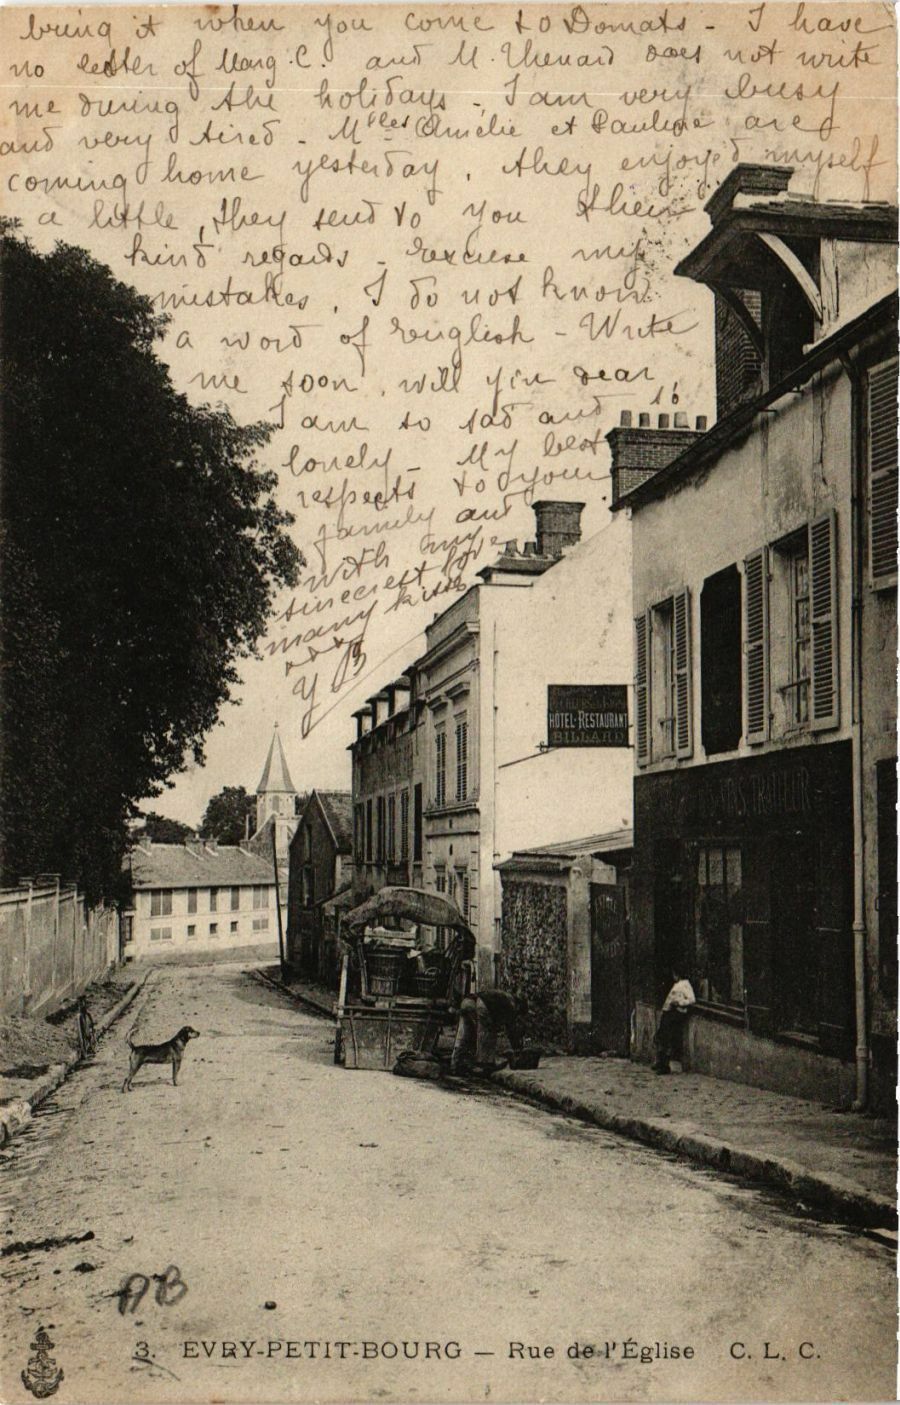 bring it when you come to Domats - I have
no letter of Marg. C. and M. Thenard does not write
me during the holidays - I am very busy
and very tired - Melles Amélie et Pauline are
coming home yesterday, they enjoyed myself
a little, they send to you their
kind regards - excuse my
mistakes, I do not know
a word of english - Write
me soon, will you dear,
I am so sad and so
lonely - My best
respects to your
family and
with my
sincerest love
many kisses
Y B
HÔTEL-RESTAURANT
BILLARD
AB
3. EVRY-PETIT-BOURG — Rue de l'Église C. L. C.